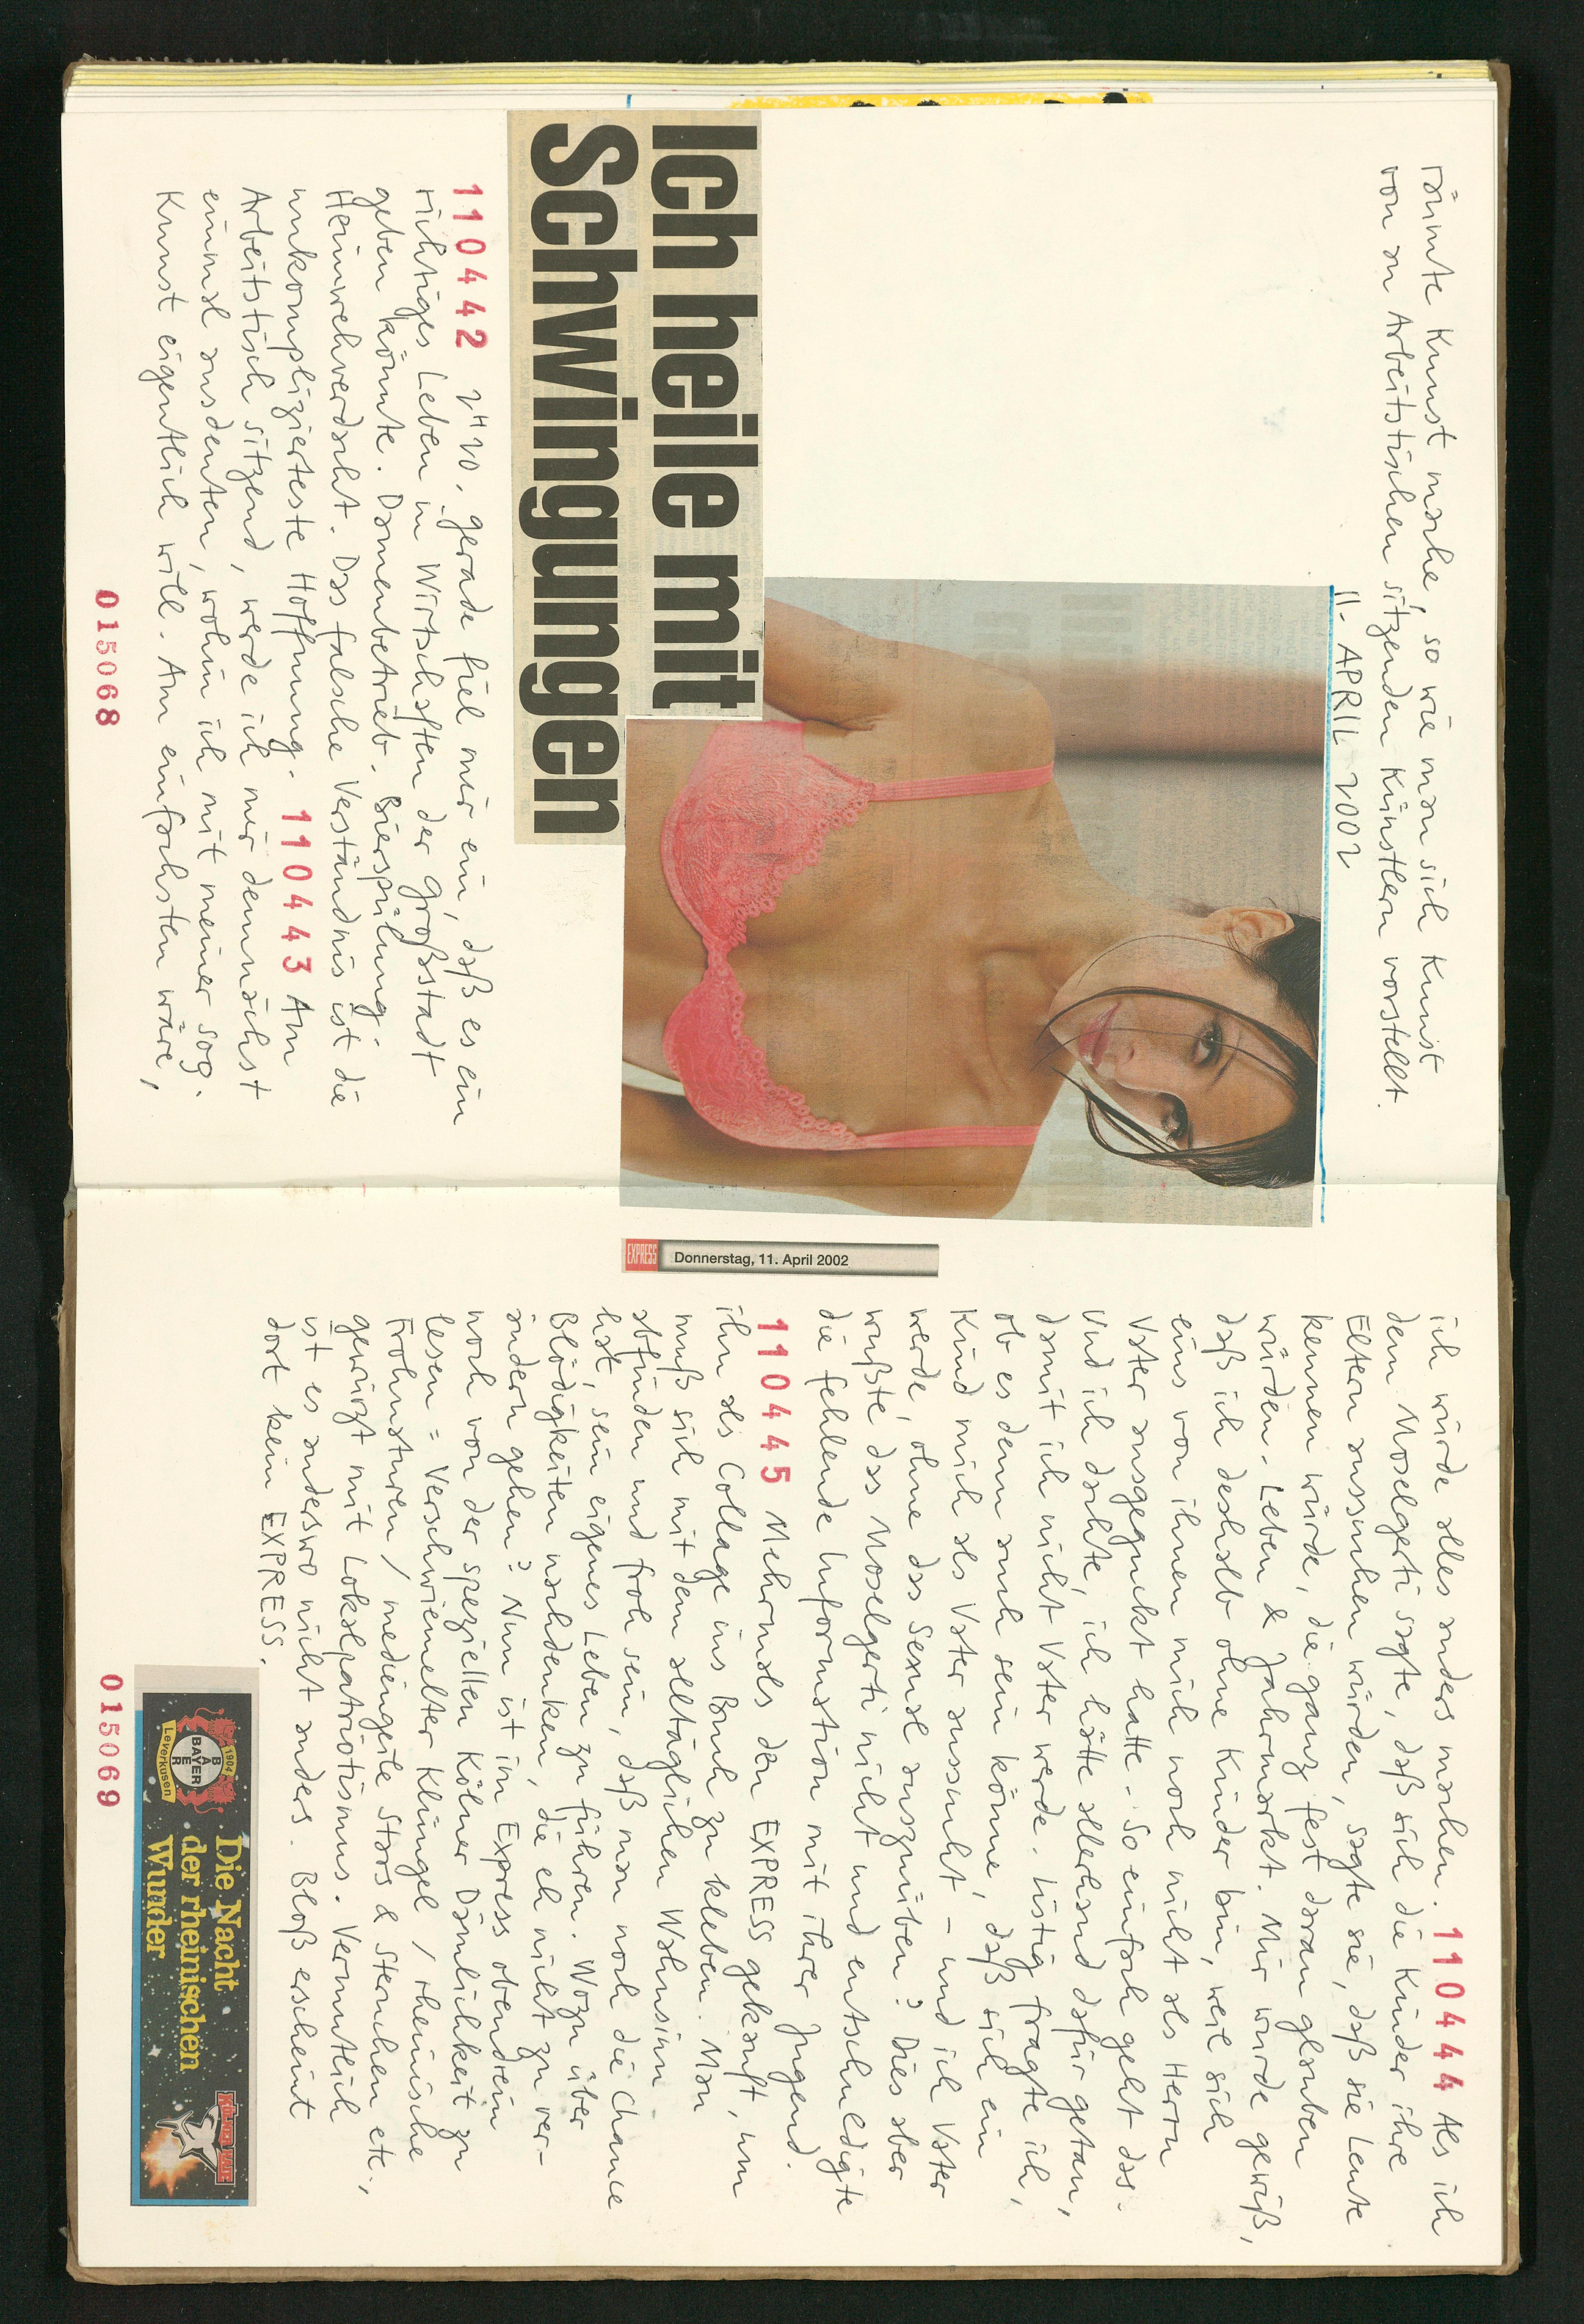 räumte Kunst mache, so wie man sich Kunst
von an Arbeitstischen sitzenden Künstlern vorstellt.
11. APRIL 2002
Ich heile mit
Schwingungen
110442 2H20. gerade fiel mir ein, daß es ein
richtiges Leben in Wirtschaften der Großstadt
geben könnte. Damenbetrieb. Bierspülung.
Heimwehverdacht. Das falsche Verständnis ist die
unkomplizierteste Hoffnung. 110443 Am
Arbeitstisch sitzend, werde ich mir demnächst
einmal ausdenken, wohin ich mit meiner sog.
Kunst eigentlich will. Am einfachsten wäre,
015068
EXPRESS Donnerstag, 11. April 2002
ich würde alles anders machen. 110444 Als ich
dem Moselgerti sagte, daß sich die Kinder ihre
Eltern aussuchen würden, sagte sie, daß sie Leute
kennen würde, die ganz fest daran glauben
würden. Leben & Jahrmarkt. Mir wurde gewiß,
daß ich deshalb ohne Kinder bin, weil sich
eins von ihnen mich noch nicht als Herrn
Vater ausgeguckt hatte. So einfach geht das.
Und ich dachte, ich hätte allerhand dafür getan,
damit ich nicht Vater werde. Listig fragte ich,
ob es denn auch sein könne, daß sich ein
Kind mich als Vater aussucht – und ich Vater
werde, ohne das Sexual auszuüben? Dies aber
wußte das Moselgerti nicht und entschuldigte
die fehlende Information mit ihrer Jugend.
110445 Mehrmals den EXPRESS gekauft, um
ihn als Collage ins Buch zu kleben. Man
muß sich mit dem alltäglichen Wahnsinn
abfinden und froh sein, daß man noch die Chance
hat, sein eigenes Leben zu führen. Wozu über
Blödigkeiten nachdenken, die eh nicht zu ver-
ändern gehen? Nun ist im Express obendrein
noch von der speziellen Kölner Dämlichkeit zu
lesen = Verschwiemelter Klüngel / rheinische
Frohnaturen / mediengeile Stars & Sternchen etc.,
gewürzt mit Lokalpatriotismus. Vermutlich
ist es anderswo nicht anders. Bloß erscheint
dort kein EXPRESS.
1904
BAYER
BAYER
Leverkusen
Die Nacht
der rheinischen
Wunder
015069